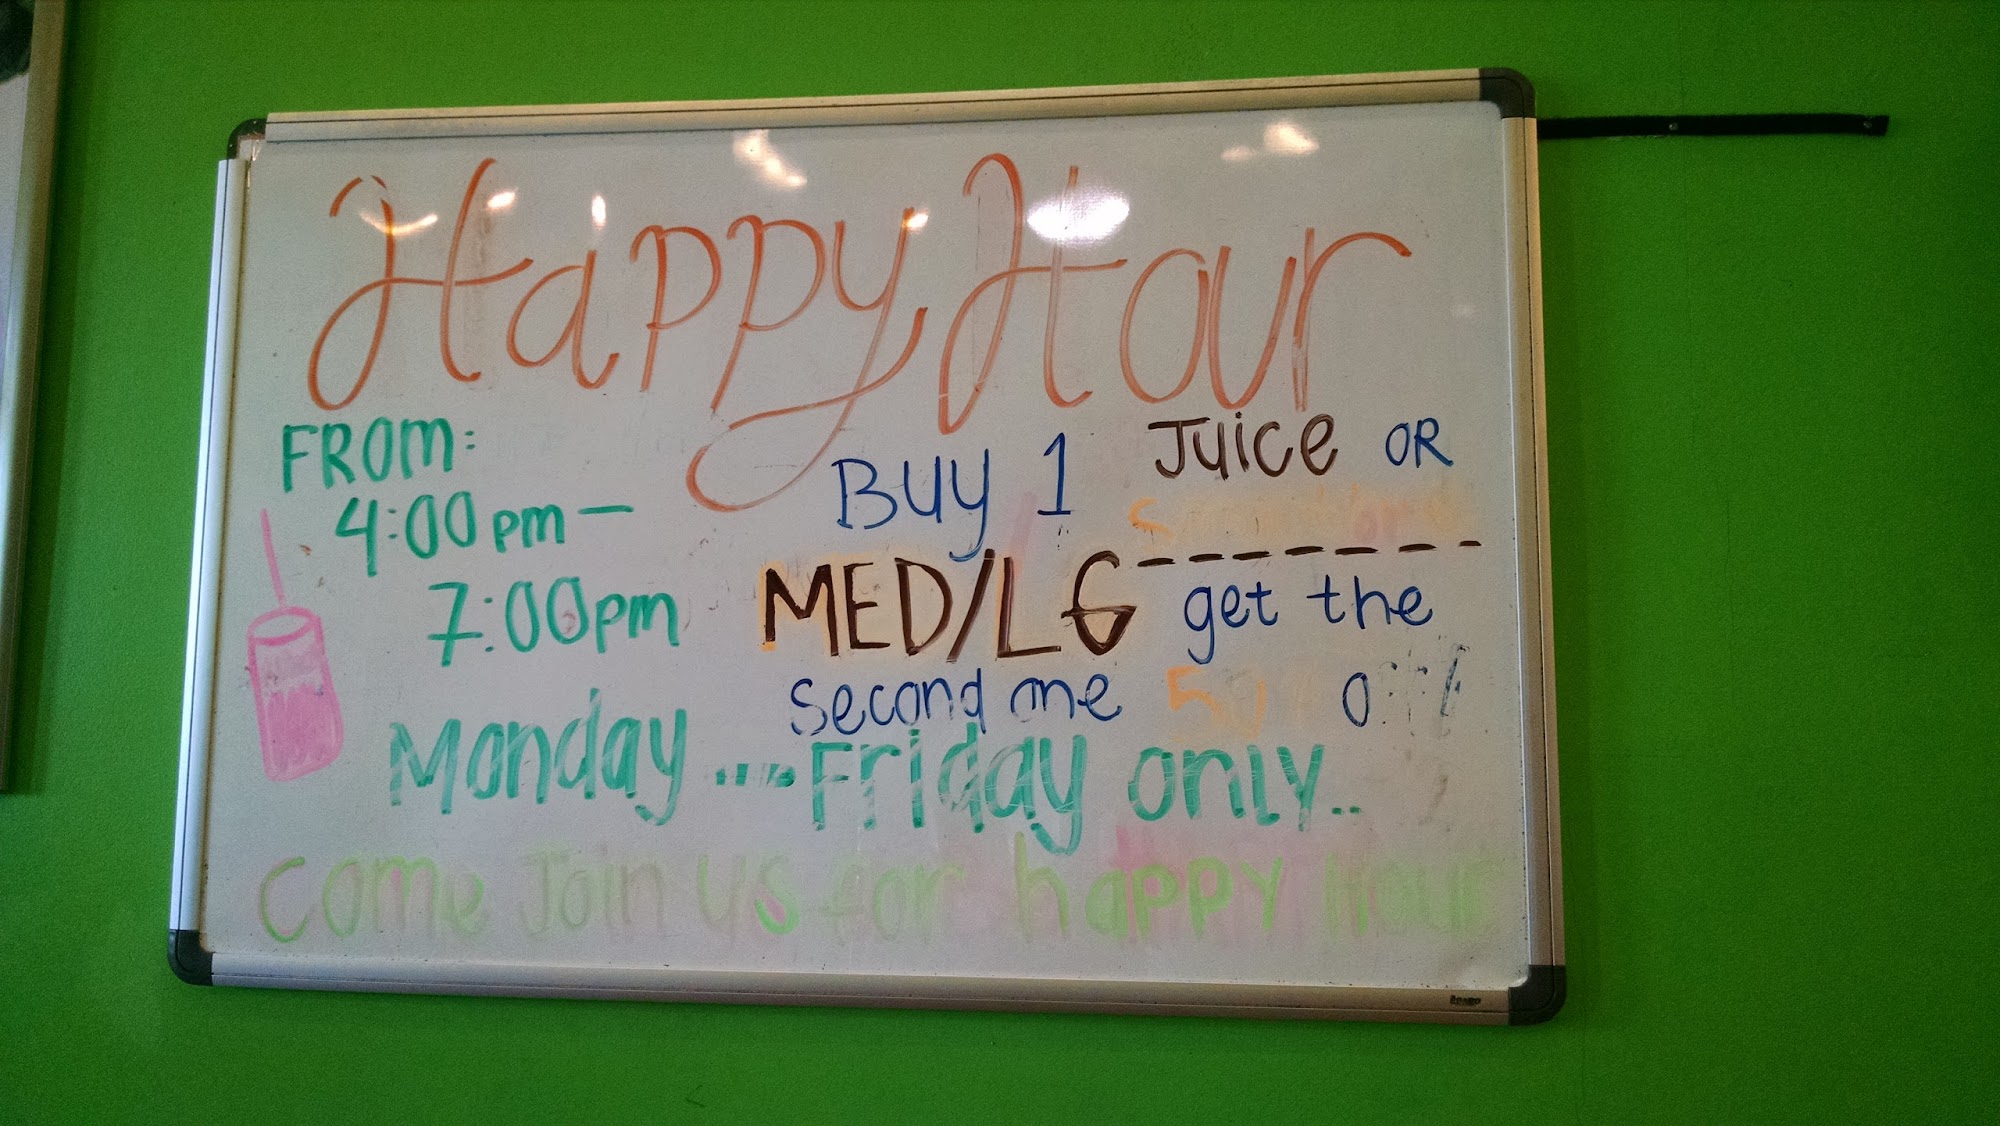 Happy Hour
FROM:
4:00pm —
7:00pm
Monday .... Friday only..
Buy 1 Juice OR
MED/LG ------- get the
second one 50% off
Come Join us for happy Hour